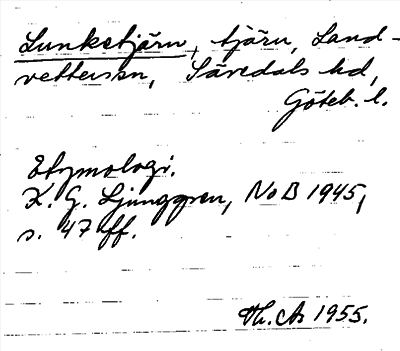 Lunketjärn, tjärn, Land-
vetterssn, Sävedals hd,
Göteb. l.
Etymologi.
K. G. Ljunggren, NoB 1945,
s. 47 ff.
Th. As 1955.